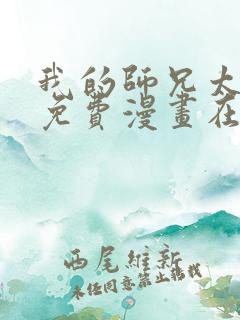 我的師兄太
免費漫畫在
西尾維新
未经同意禁止转载